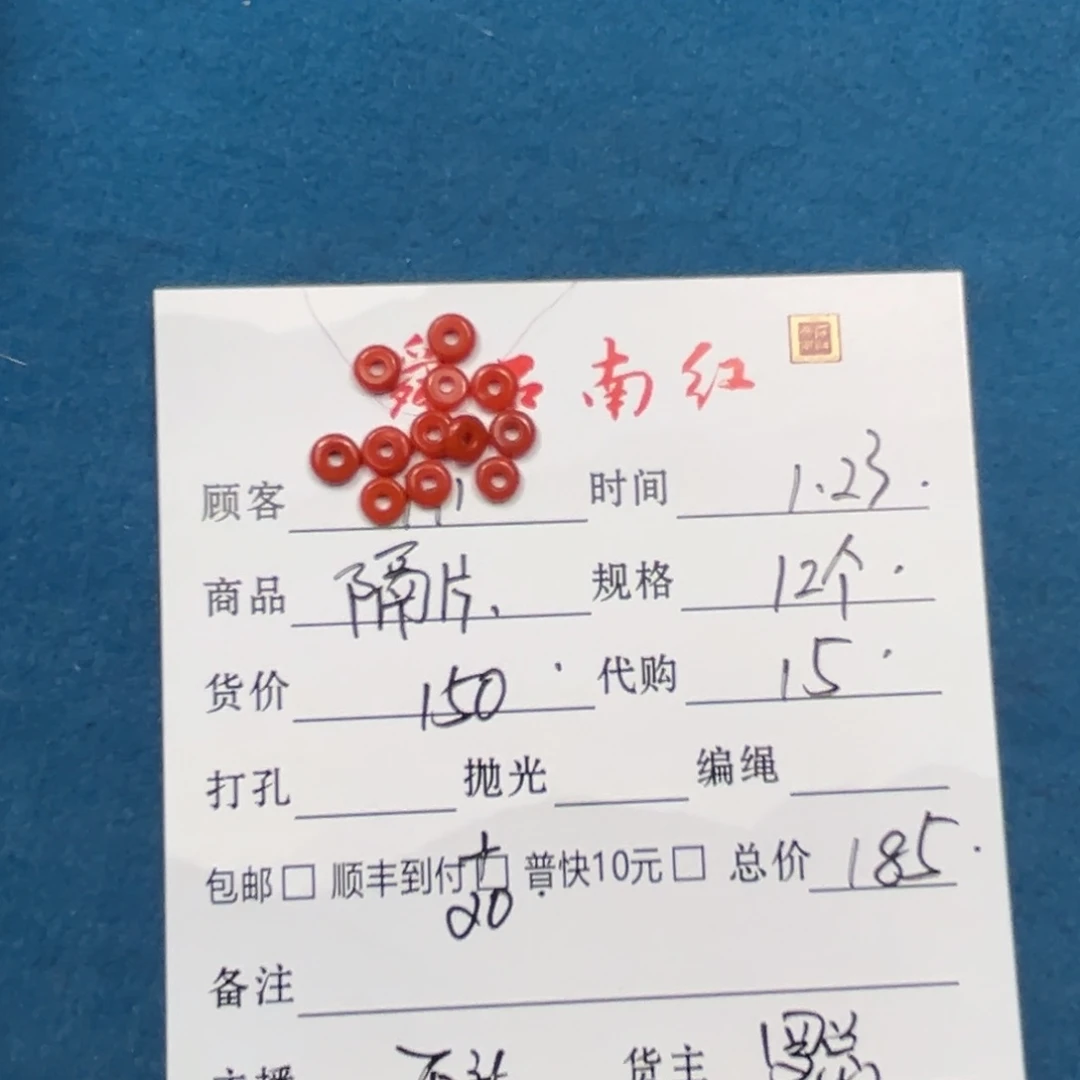 石南红
顾客 时间 1.23.
商品 隔片. 规格 12个.
货价 150. 代购 15.
打孔 抛光 编绳
包邮□ 顺丰到付□ +20. 普快10元□ 总价 185.
备注
主播 货主